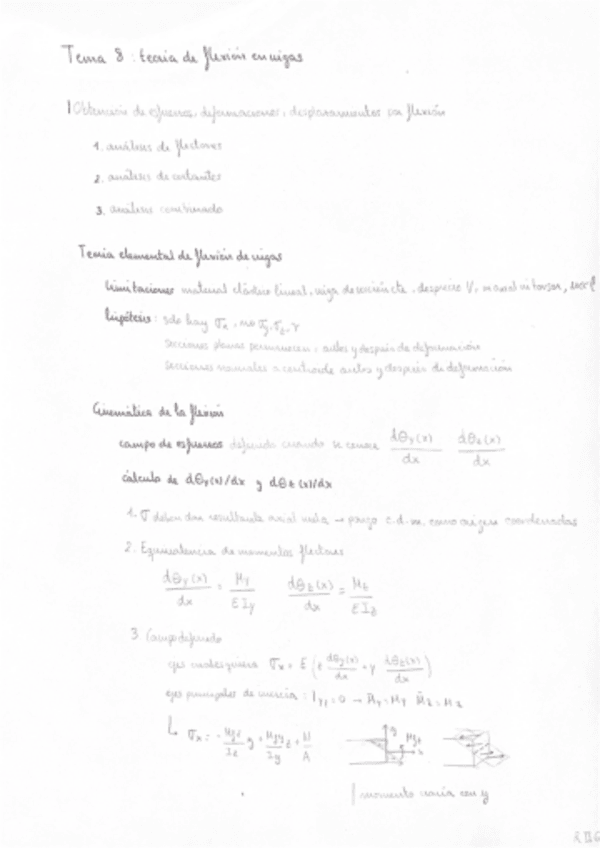 Tema 8: teoría de flexión en vigas
Obtención de esfuerzos, deformaciones, desplazamientos por flexión
1. análisis de flectores
2. análisis de cortantes
3. análisis combinado
Teoría elemental de flexión de vigas
limitaciones material elástico lineal, viga de sección cte, desprecio V, ni axial ni torsor,
hipótesis: solo hay σx, no σy, σz, γ
secciones planas permanecen, antes y después de deformación
secciones normales a centroide antes y después de deformación
Cinemática de la flexión
campo de esfuerzos definido cuando se conoce dθy(x)/dx dθz(x)/dx
cálculo de dθy(x)/dx y dθz(x)/dx
1. σ deben dar resultante axial nula → pongo c.d.m. como origen coordenadas
2. Equivalencia de momentos flectores
dθy(x)/dx = My/EIy dθz(x)/dx = Mz/EIz
3. Campo definido
ejes cualesquiera σx = E (z dθy(x)/dx - y dθz(x)/dx)
ejes principales de inercia: = 0 → M̄y = My M̄z = Mz
σx = - y + z + N/A
momento varía con y